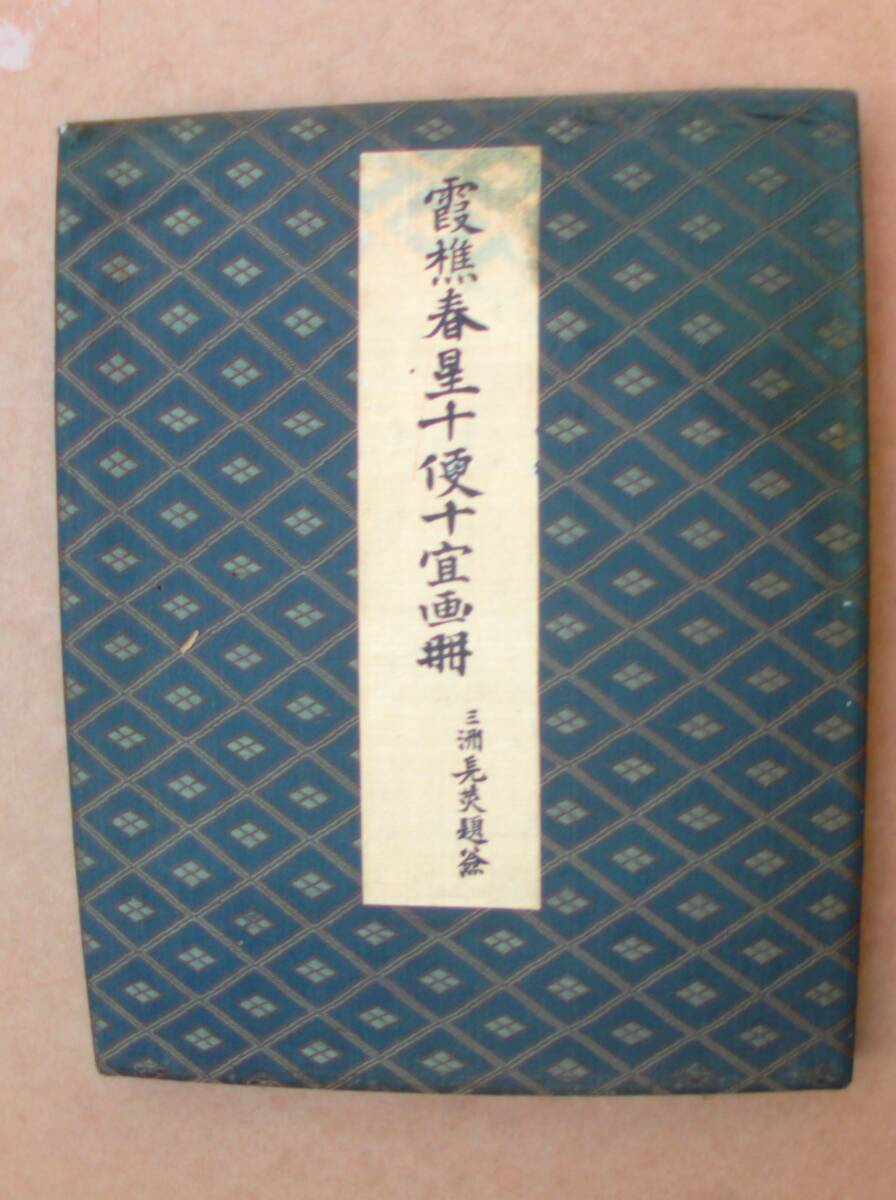 霞樵春星十便十宜画冊
三洲長炗題簽